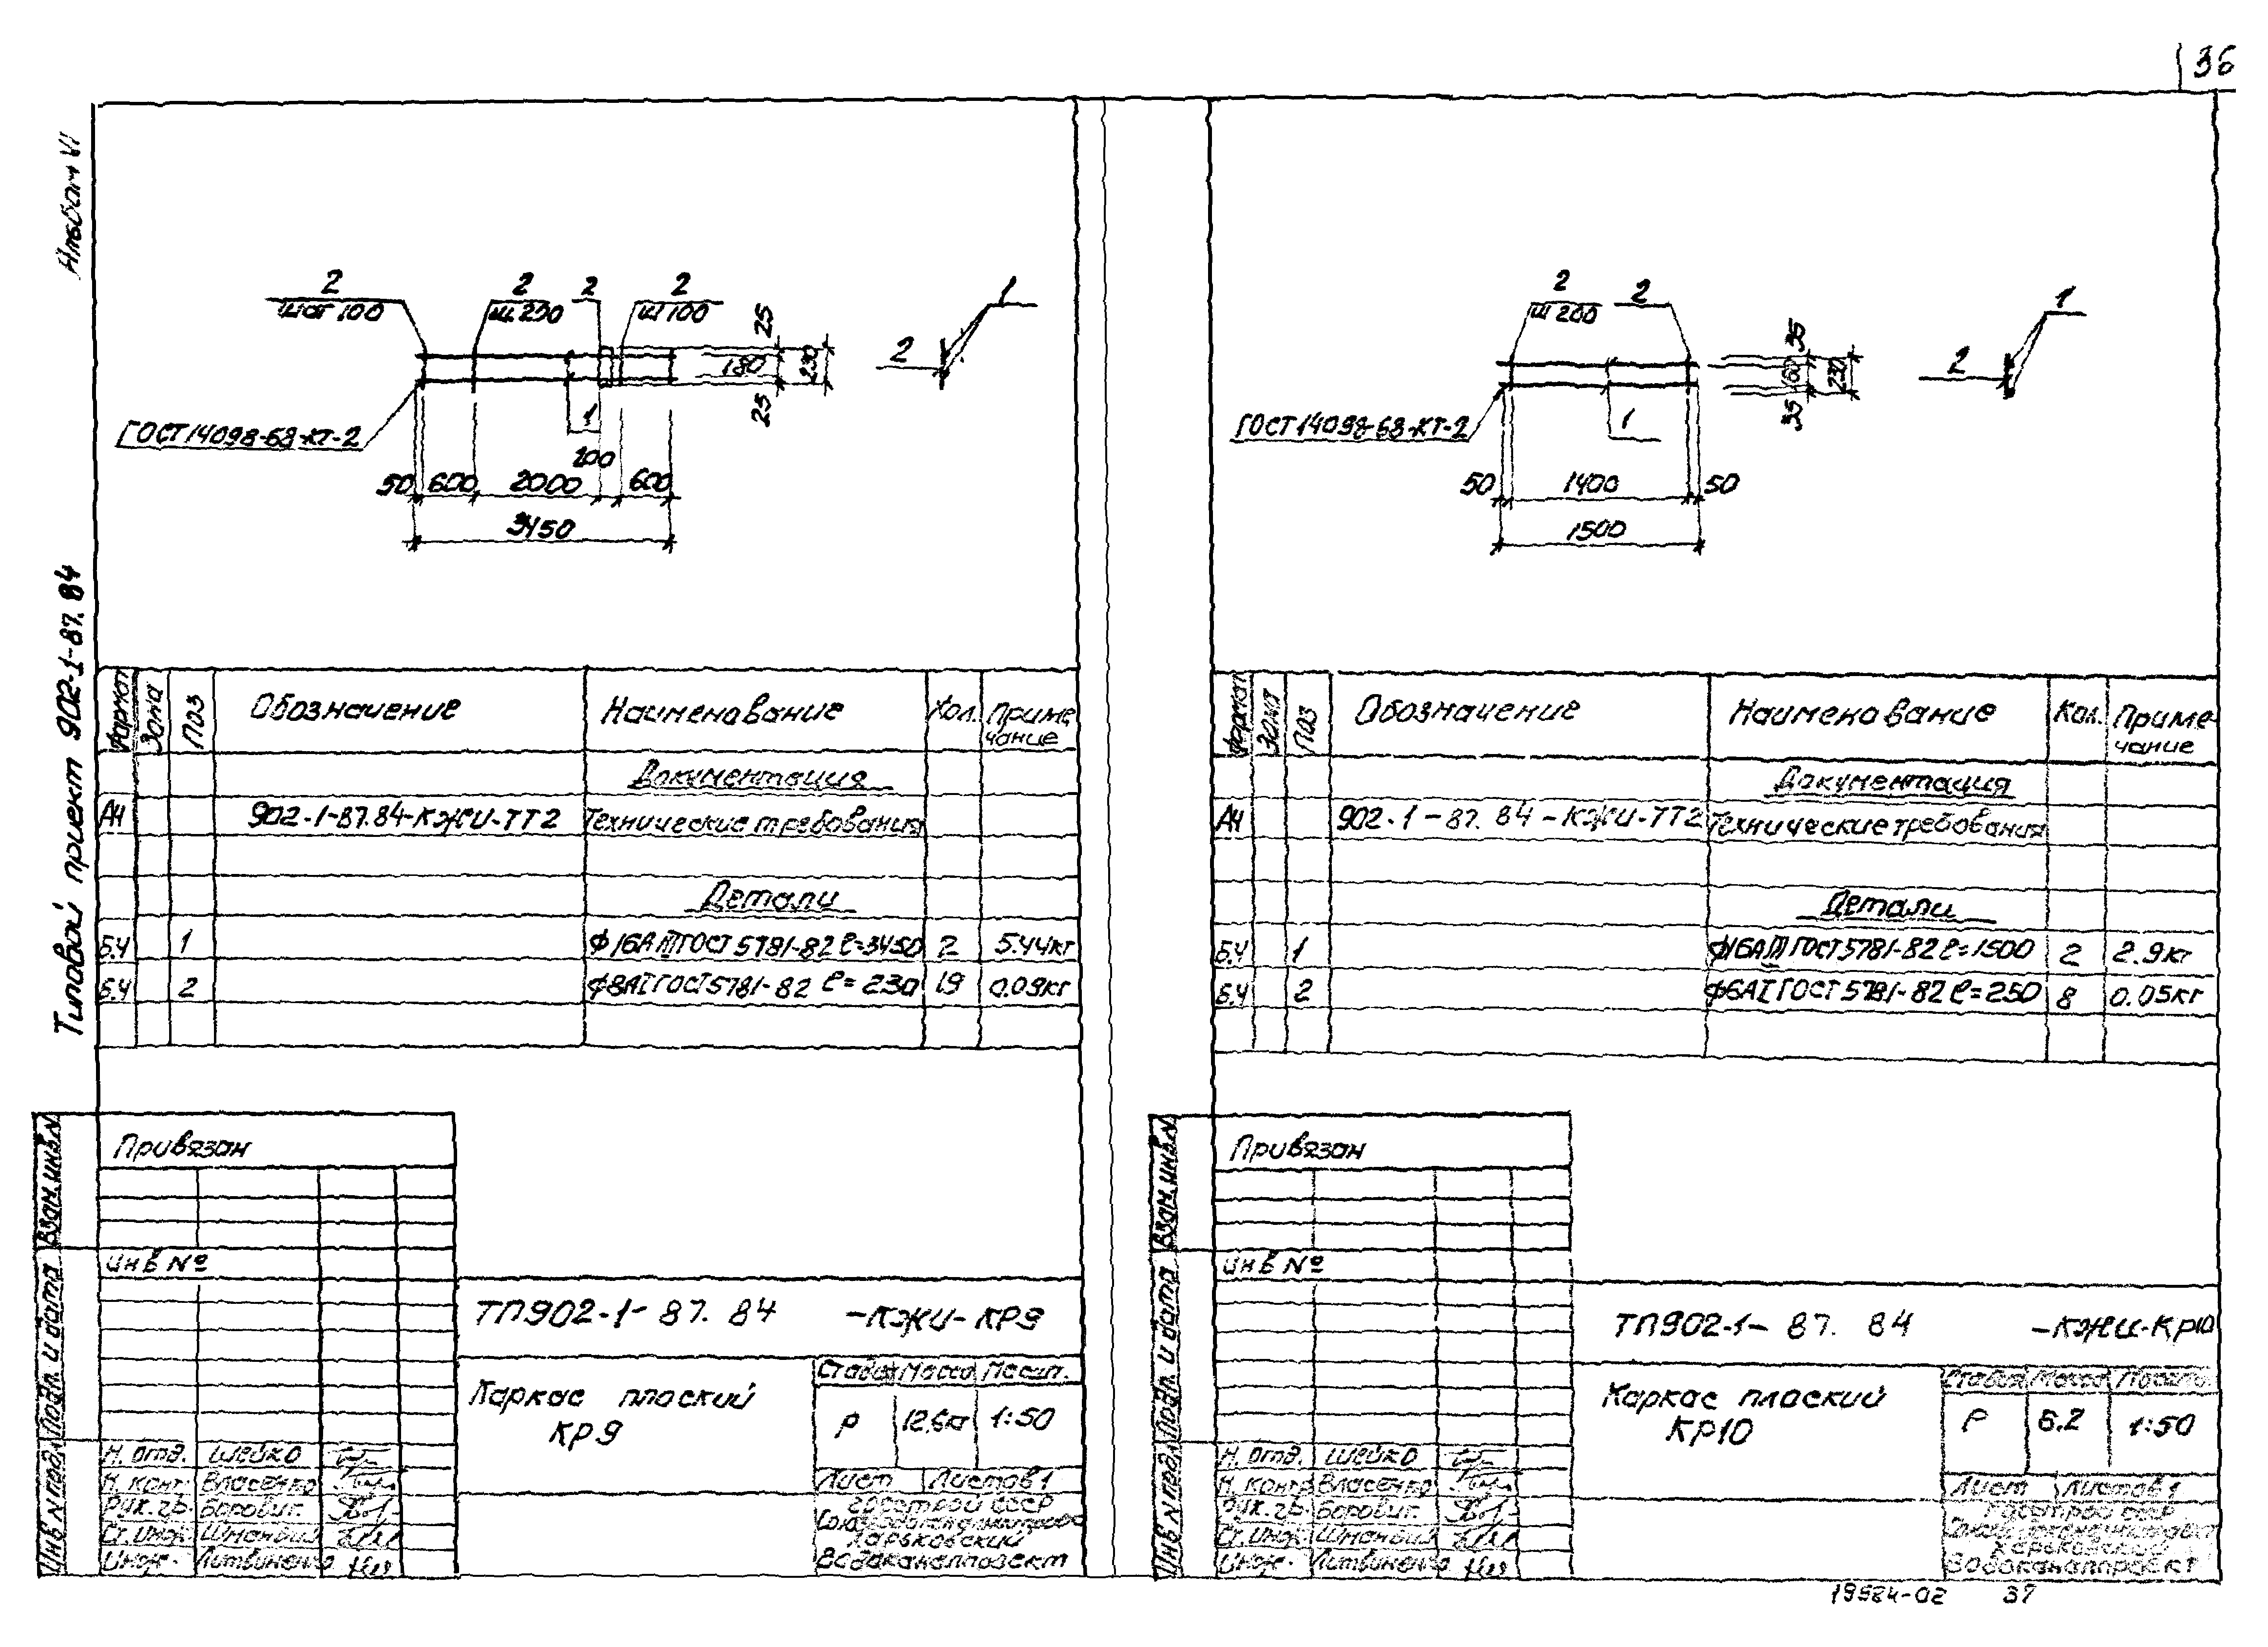 36
Альбом VI
Типовой проект 902-1-87.84
2
шаг 100
2
ш.200
2
2
ш 100
25
180
230
25
1
2
ГОСТ 14098-68-КТ-2
1
200
50 600 2000 600
3450
Формат Зона Поз Обозначение Наименование Кол. Приме
чание
Документация
А4 902-1-87.84-КЖИ-ТТ2 Технические требования
Детали
Б.Ч 1 Ф16АIII ГОСТ 5781-82 ℓ=3450 2 5.44кг
Б.Ч 2 Ф8АI ГОСТ 5781-82 ℓ=230 19 0.09кг
Привязан
Инв №
ТП902-1-87.84 -КЖИ-КР9
Каркас плоский
КР9
Стадия Масса Масшт.
Р 12.6кг 1:50
Лист Листов 1
Госстрой СССР
Харьковский
Водоканалпроект
Н. отд. Шейко
Н. контр. Власенко
Рук. гр. Боровиг.
Ст. инж.
Инж. Литвиненко
Взам. инв. N
Подп. и дата
Инв N подл.
2
ш 200
2
35
160
230
35
1
2
ГОСТ 14098-68-КТ-2
1
50 1400 50
1500
Формат Зона Поз Обозначение Наименование Кол. Приме-
чание
Документация
А4 902-1-87.84-КЖИ-ТТ2 Технические требования
Детали
Б.Ч 1 Ф16АIII ГОСТ 5781-82 ℓ=1500 2 2.9кг
Б.Ч 2 Ф6АI ГОСТ 5781-82 ℓ=250 8 0.05кг
Привязан
Инв №
ТП902-1-87.84 -КЖИ-КР10
Каркас плоский
КР10
Стадия Масса Масшт.
Р 6.2 1:50
Лист Листов 1
Госстрой СССР
Харьковский
Водоканалпроект
Н. отд. Шейко
Н. контр. Власенко
Рук. гр. Боровиг.
Ст. инж.
Инж. Литвиненко
Взам. инв. N
Подп. и дата
Инв N подл.
19984-02 37